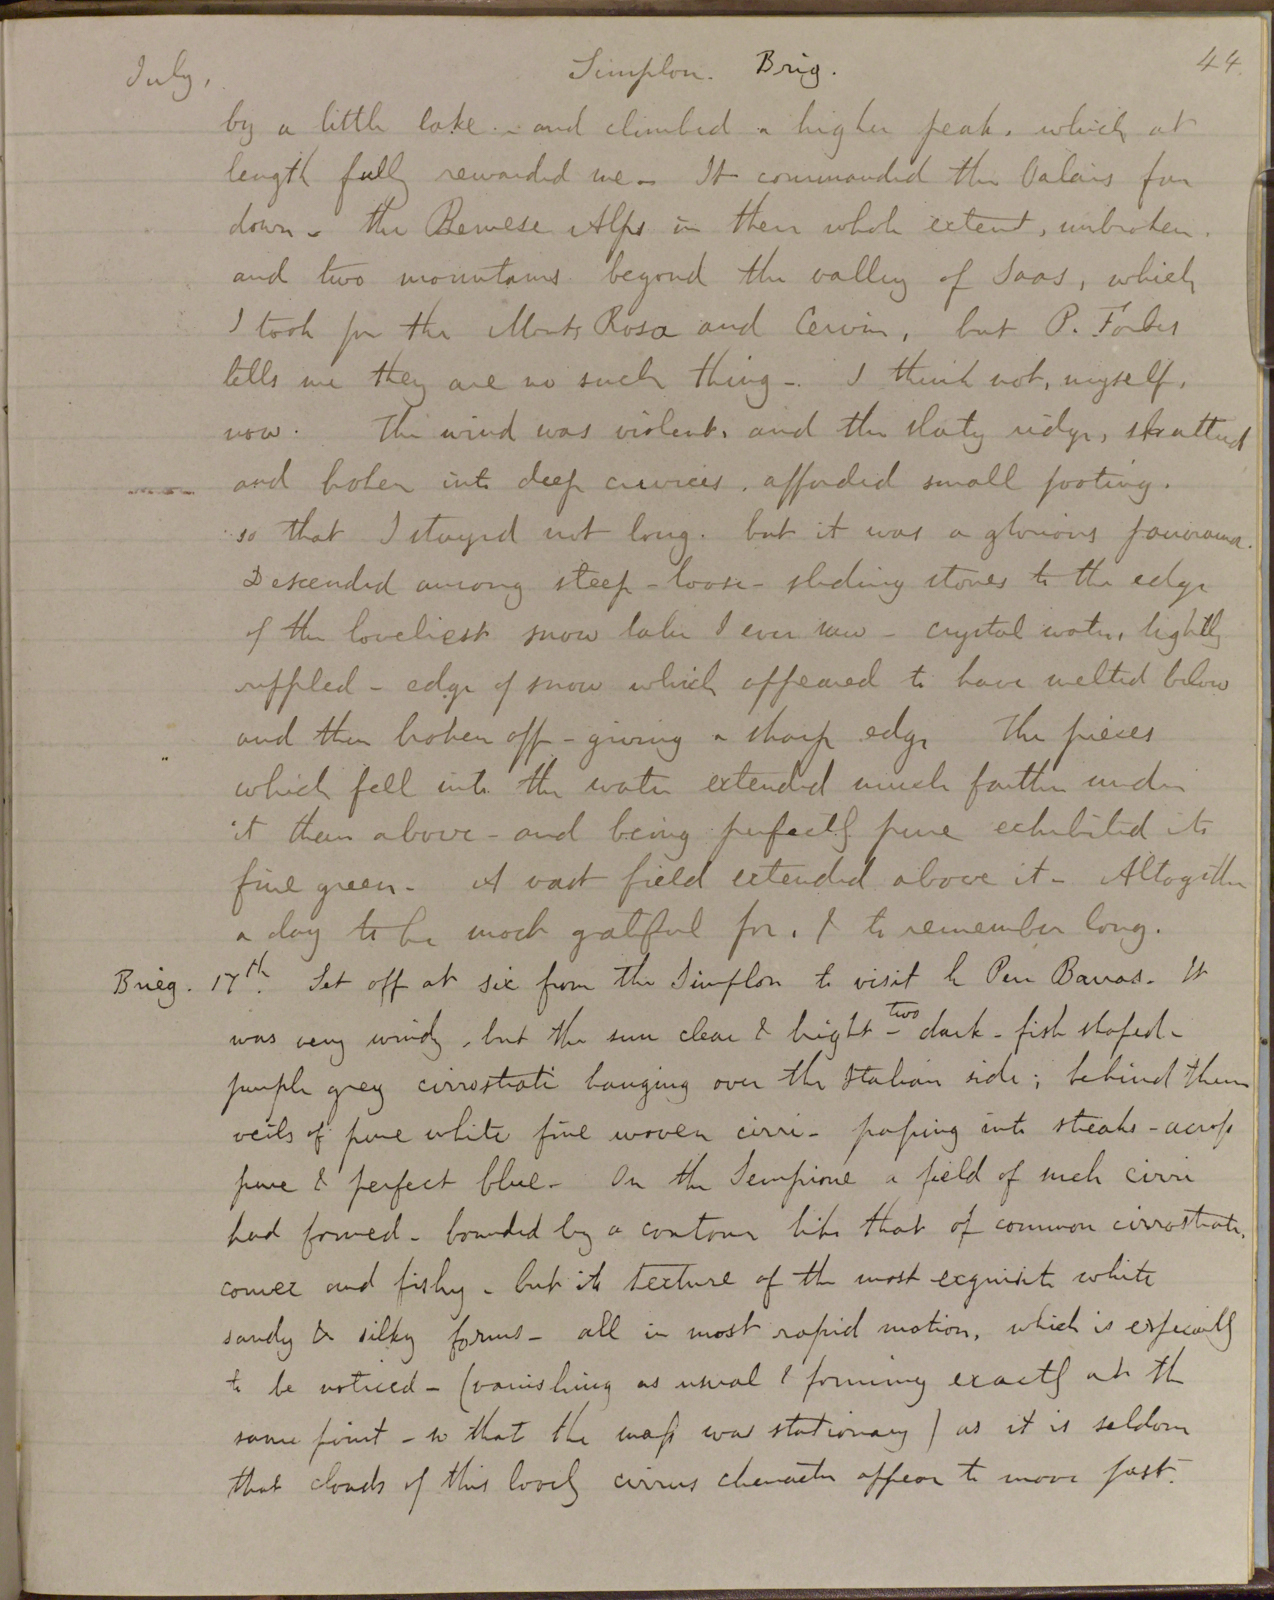 July. Simplon. Brig. 44.
by a little lake - and climbed a higher peak, which at
length fully rewarded me - It commanded the Valais far
down - the Bernese Alps in their whole extent, unbroken.
and two mountains beyond the valley of Saas, which
I took for the Monts Rosa and Cervin, but P. Forbes
tells me they are no such thing -. I think not, myself,
now. The wind was violent, and the slaty ridge, shattered
and broken into deep crevices, afforded small footing.
so that I stayed not long. but it was a glorious panorama.
Descended among steep - loose - sliding stones to the edge
of the loveliest snow lake I ever saw - crystal water, lightly
rippled - edge of snow which appeared to have melted below
and then broken off - giving a sharp edge The pieces
which fell into the water extended much farther under
it than above - and being perfectly pure exhibited its
fine green - A vast field extended above it - Altogether
a day to be most grateful for, & to remember long.
Brieg. 17th. Set off at six from the Simplon to visit le Pere Barras. It
was very windy, but the sun clear & bright - two dark - fish shaped -
purple grey cirrostrati hanging over the Italian side; behind them
veils of pure white fine woven cirri - passing into streaks - across
pure & perfect blue - On the Sempione a field of such cirri
had formed - bounded by a contour like that of common cirrostrati,
convex and fishy - but its texture of the most exquisite white
sandy & silky forms - all in most rapid motion, which is especially
to be noticed - (vanishing as usual & forming exactly at the
same point - so that the mass was stationary) as it is seldom
that clouds of this lovely cirrus character appear to move fast.